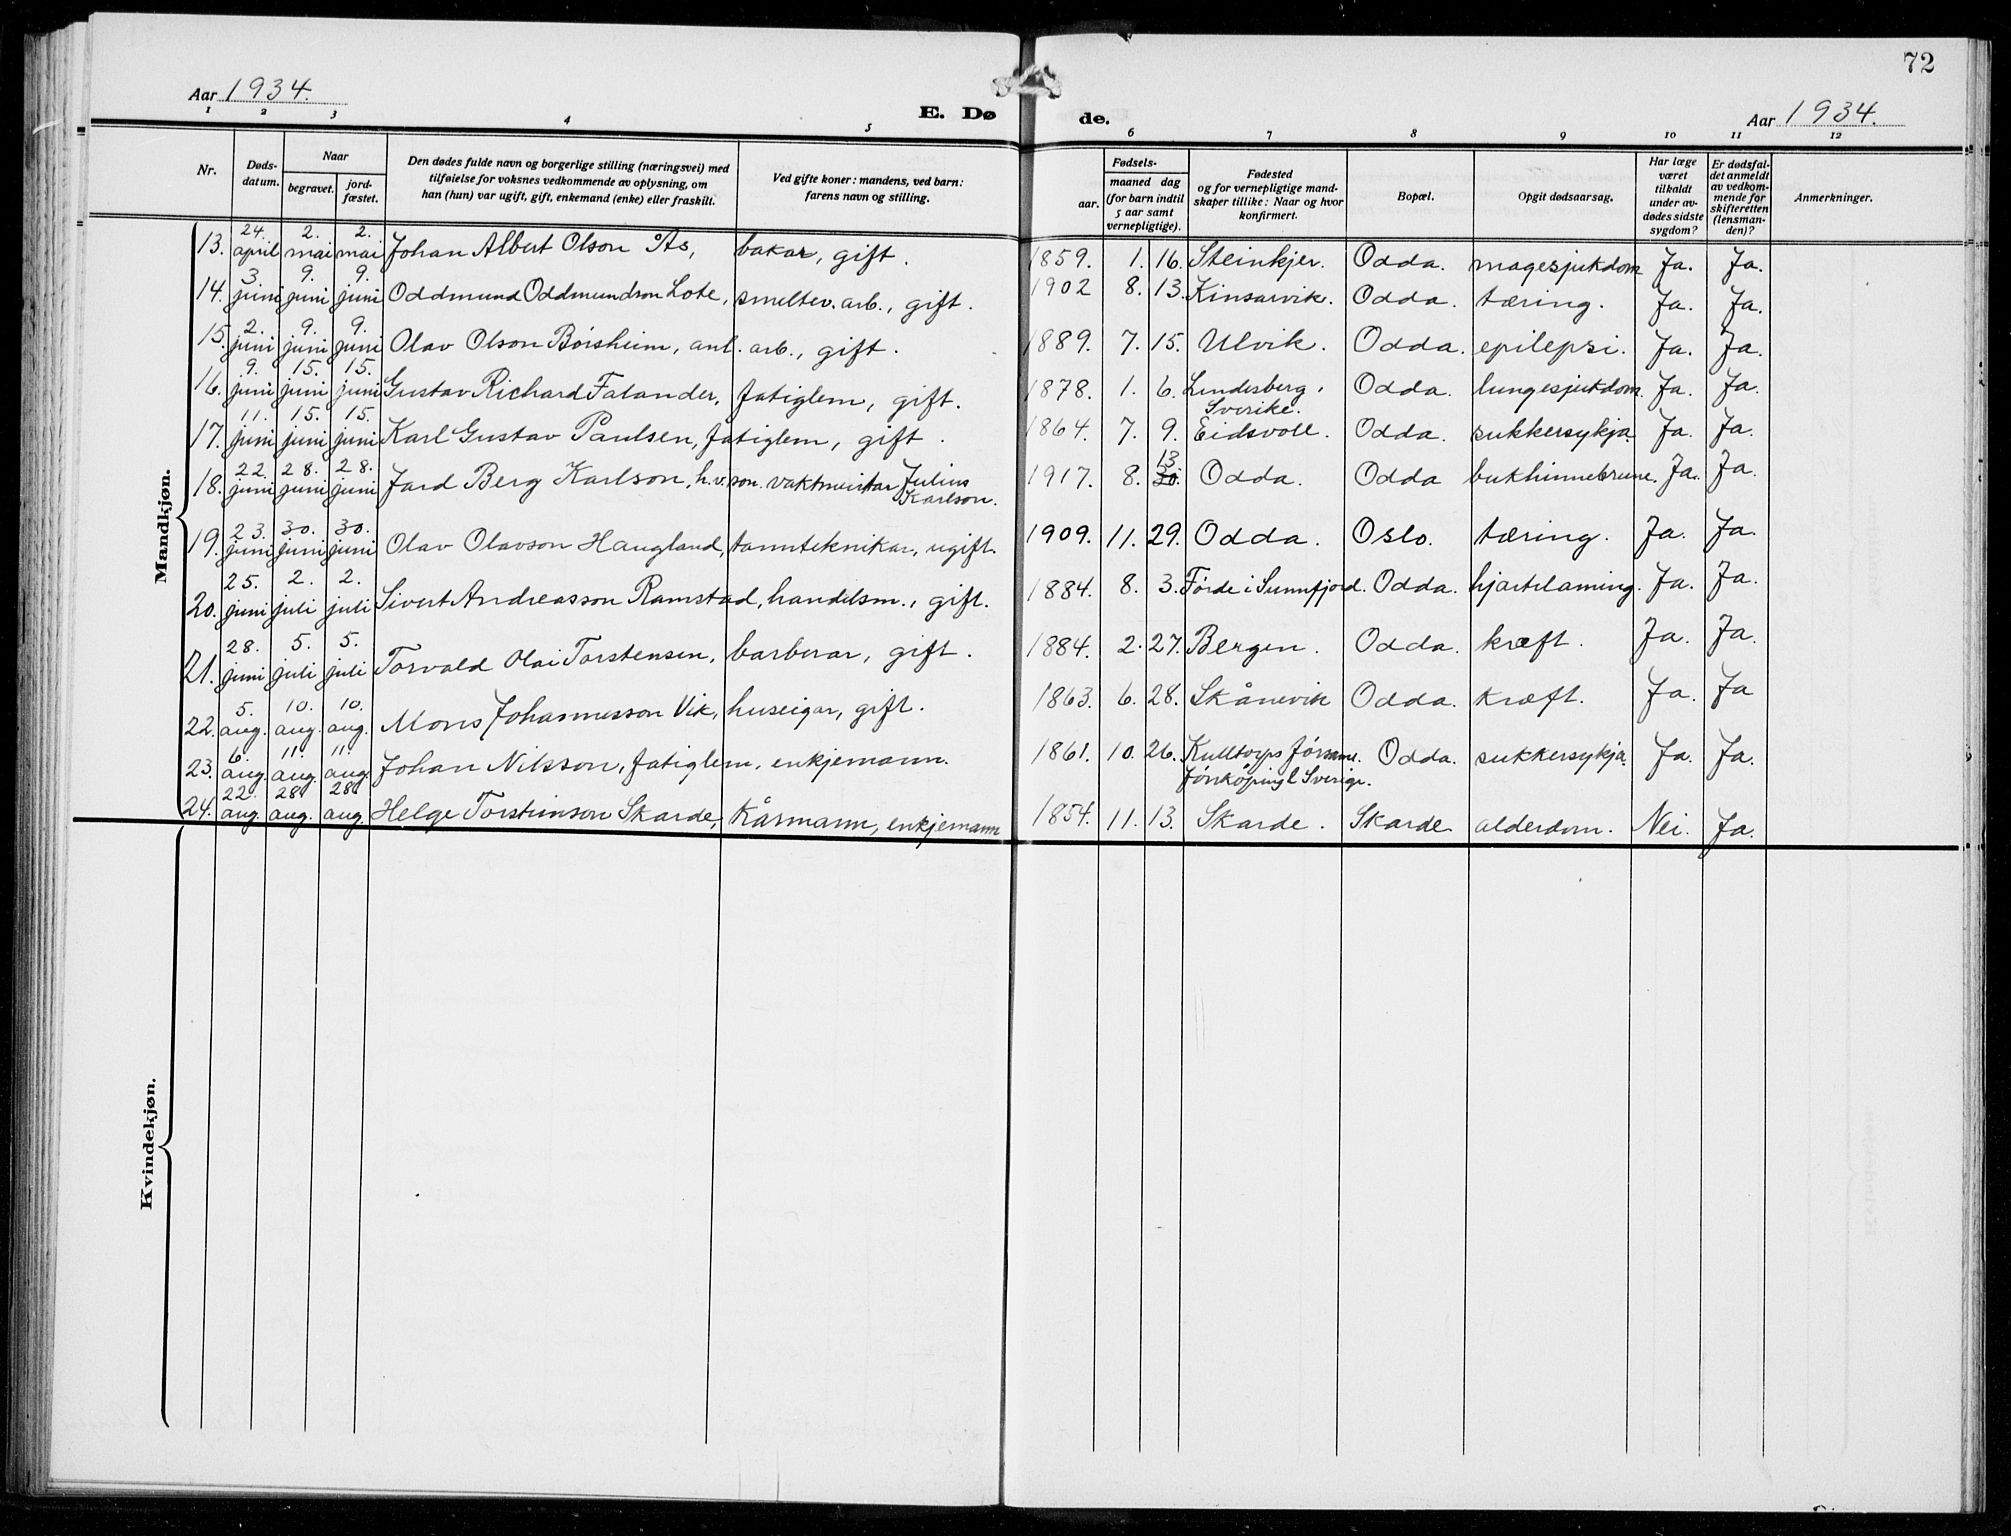 72
Aar 1934.
E. Døde.
Aar 1934.
1 2 3 4 5 6 7 8 9 10 11 12
Nr.
Døds-datum.
Naar
begravet.
jord-fæstet.
Den dødes fulde navn og borgerlige stilling (næringsvei) med
tilføielse for voksnes vedkommende av oplysning, om
han (hun) var ugift, gift, enkemand (enke) eller fraskilt.
Ved gifte koner: mandens, ved barn:
farens navn og stilling.
Fødsels-
aar.
maaned dag
(for barn indtil
5 aar samt
vernepligtige).
Fødested
og for vernepligtige mand-
skaper tillike: Naar og hvor
konfirmert.
Bopæl.
Opgit dødsaarsag.
Har læge
været
tilkaldt
under av-
dødes sidste
sygdom?
Er dødsfal-
det anmeldt
av vedkom-
mende for
skifteretten
(lensman-
den)?
Anmerkninger.
Mandkjøn.
13. 24. april 2. mai 2. mai Johan Albert Olson Ås, bakar, gift. 1859. 1. 16. Steinkjer. Odda. magesjukdom Ja. Ja.
14. 3 juni 9. juni 9. juni Oddmund Oddmundson Lote, smeltev. arb., gift. 1902 8. 13. Kinsarvik. Odda. tæring. Ja. Ja.
15. 2. juni 9. juni 9. juni Olav Olson Børsheim, anl. arb., gift. 1889. 7. 15. Ulvik. Odda. epilepsi. Ja. Ja.
16. 9. juni 15. juni 15. juni Gustav Richard Falander, fatiglem, gift. 1878. 1. 6. Lindesberg, Sverike. Odda. lungesjukdom. Ja. Ja.
17. 11. juni 15. juni 15. juni Karl Gustav Paulsen, fatiglem, gift. 1864. 7. 9. Eidsvoll. Odda. sukkersykja Ja. Ja.
18. 22. juni 28. juni 28. juni Jard Berg Karlson, h.v. son. vaktmeistar Julius Karlson. 1917. 8. 13 30. Odda. Odda bukhinnebrune. Ja. Ja.
19. 23. juni 30. juni 30. juni Olav Olavson Haugland, tannteknikar, ugift. 1909. 11. 29. Odda. Oslo. tæring. Ja. Ja.
20. 25. juni 2. juli 2. juli Sivert Andreasson Ramstad, handelsm., gift. 1884. 8. 3. Førde i Sunnfjord. Odda. hjartelaming. Ja. Ja.
21. 28. juni 5. juli 5. juli Torvald Olai Torstensen, barberar, gift. 1884. 2. 27. Bergen. Odda. kræft. Ja. Ja.
22. 5. aug. 10. aug. 10. aug. Mons Johannesson Vik, huseigar, gift. 1863. 6. 28. Skånevik Odda. kræft. Ja. Ja
23. 6. aug. 11. aug. 11. aug. Johan Nilsson, fatiglem, enkjemann. 1861. 10. 26. Kulltorps førsaml. Jönköping l Sverige. Odda. sukkersykja. Ja. Ja.
24. 22. aug. 28 aug. 28 aug. Helge Torsteinson Skarde, Kårmann, enkjemann 1854. 11. 13. Skarde. Skarde alderdom. Nei. Ja.
Kvindekjøn.